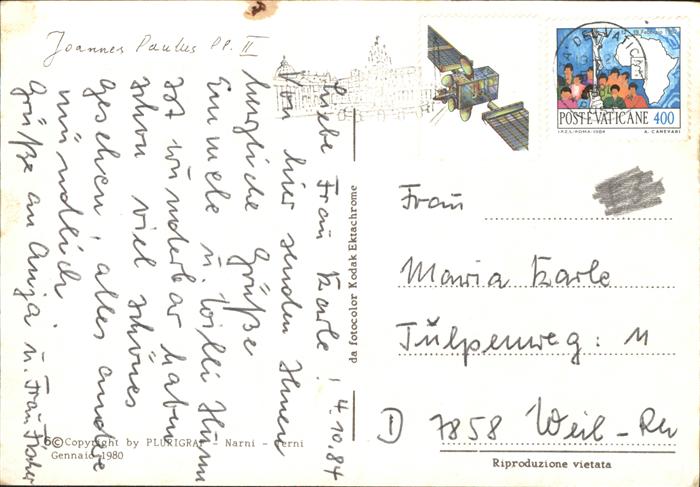 Joannes Paulus PP. II
Liebe Frau Karle! 4.10.84
Von hier senden Ihnen
herzliche Grüße
u. Willi
Ist wunderbar haben
schon viel schönes
gesehen, alles andere
mündlich
Grüße an Anja u. Frau Fischer
da fotocolor Kodak Ektachrome
© Copyright by PLURIGRAF - Narni - Terni
Gennaio 1980
POSTE VATICANE 400
I.P.Z.S.-ROMA-1984 A. CANEVARI
Frau
Maria Karle
Tulpenweg: 11
D 7858 Weil-Rh
Riproduzione vietata